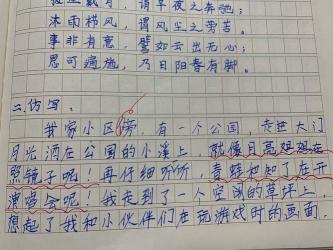 披星戴月，谓早夜之奔驰；
沐雨栉风，谓风尘之劳苦。
事非有意，譬如云出无心；
恩可遍施，乃曰阳春有脚。
二、仿写：
我家小区旁，有一个公园，走进大门
月光洒在公园的小溪上，就像月亮姐姐在
照镜子呢！再仔细听听，青蛙和知了在开
演唱会呢！我走到了一个空阔的草坪上，
想起了我和小伙伴们在玩游戏时的画面，